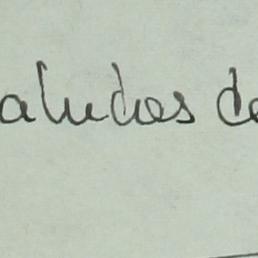 aludos de